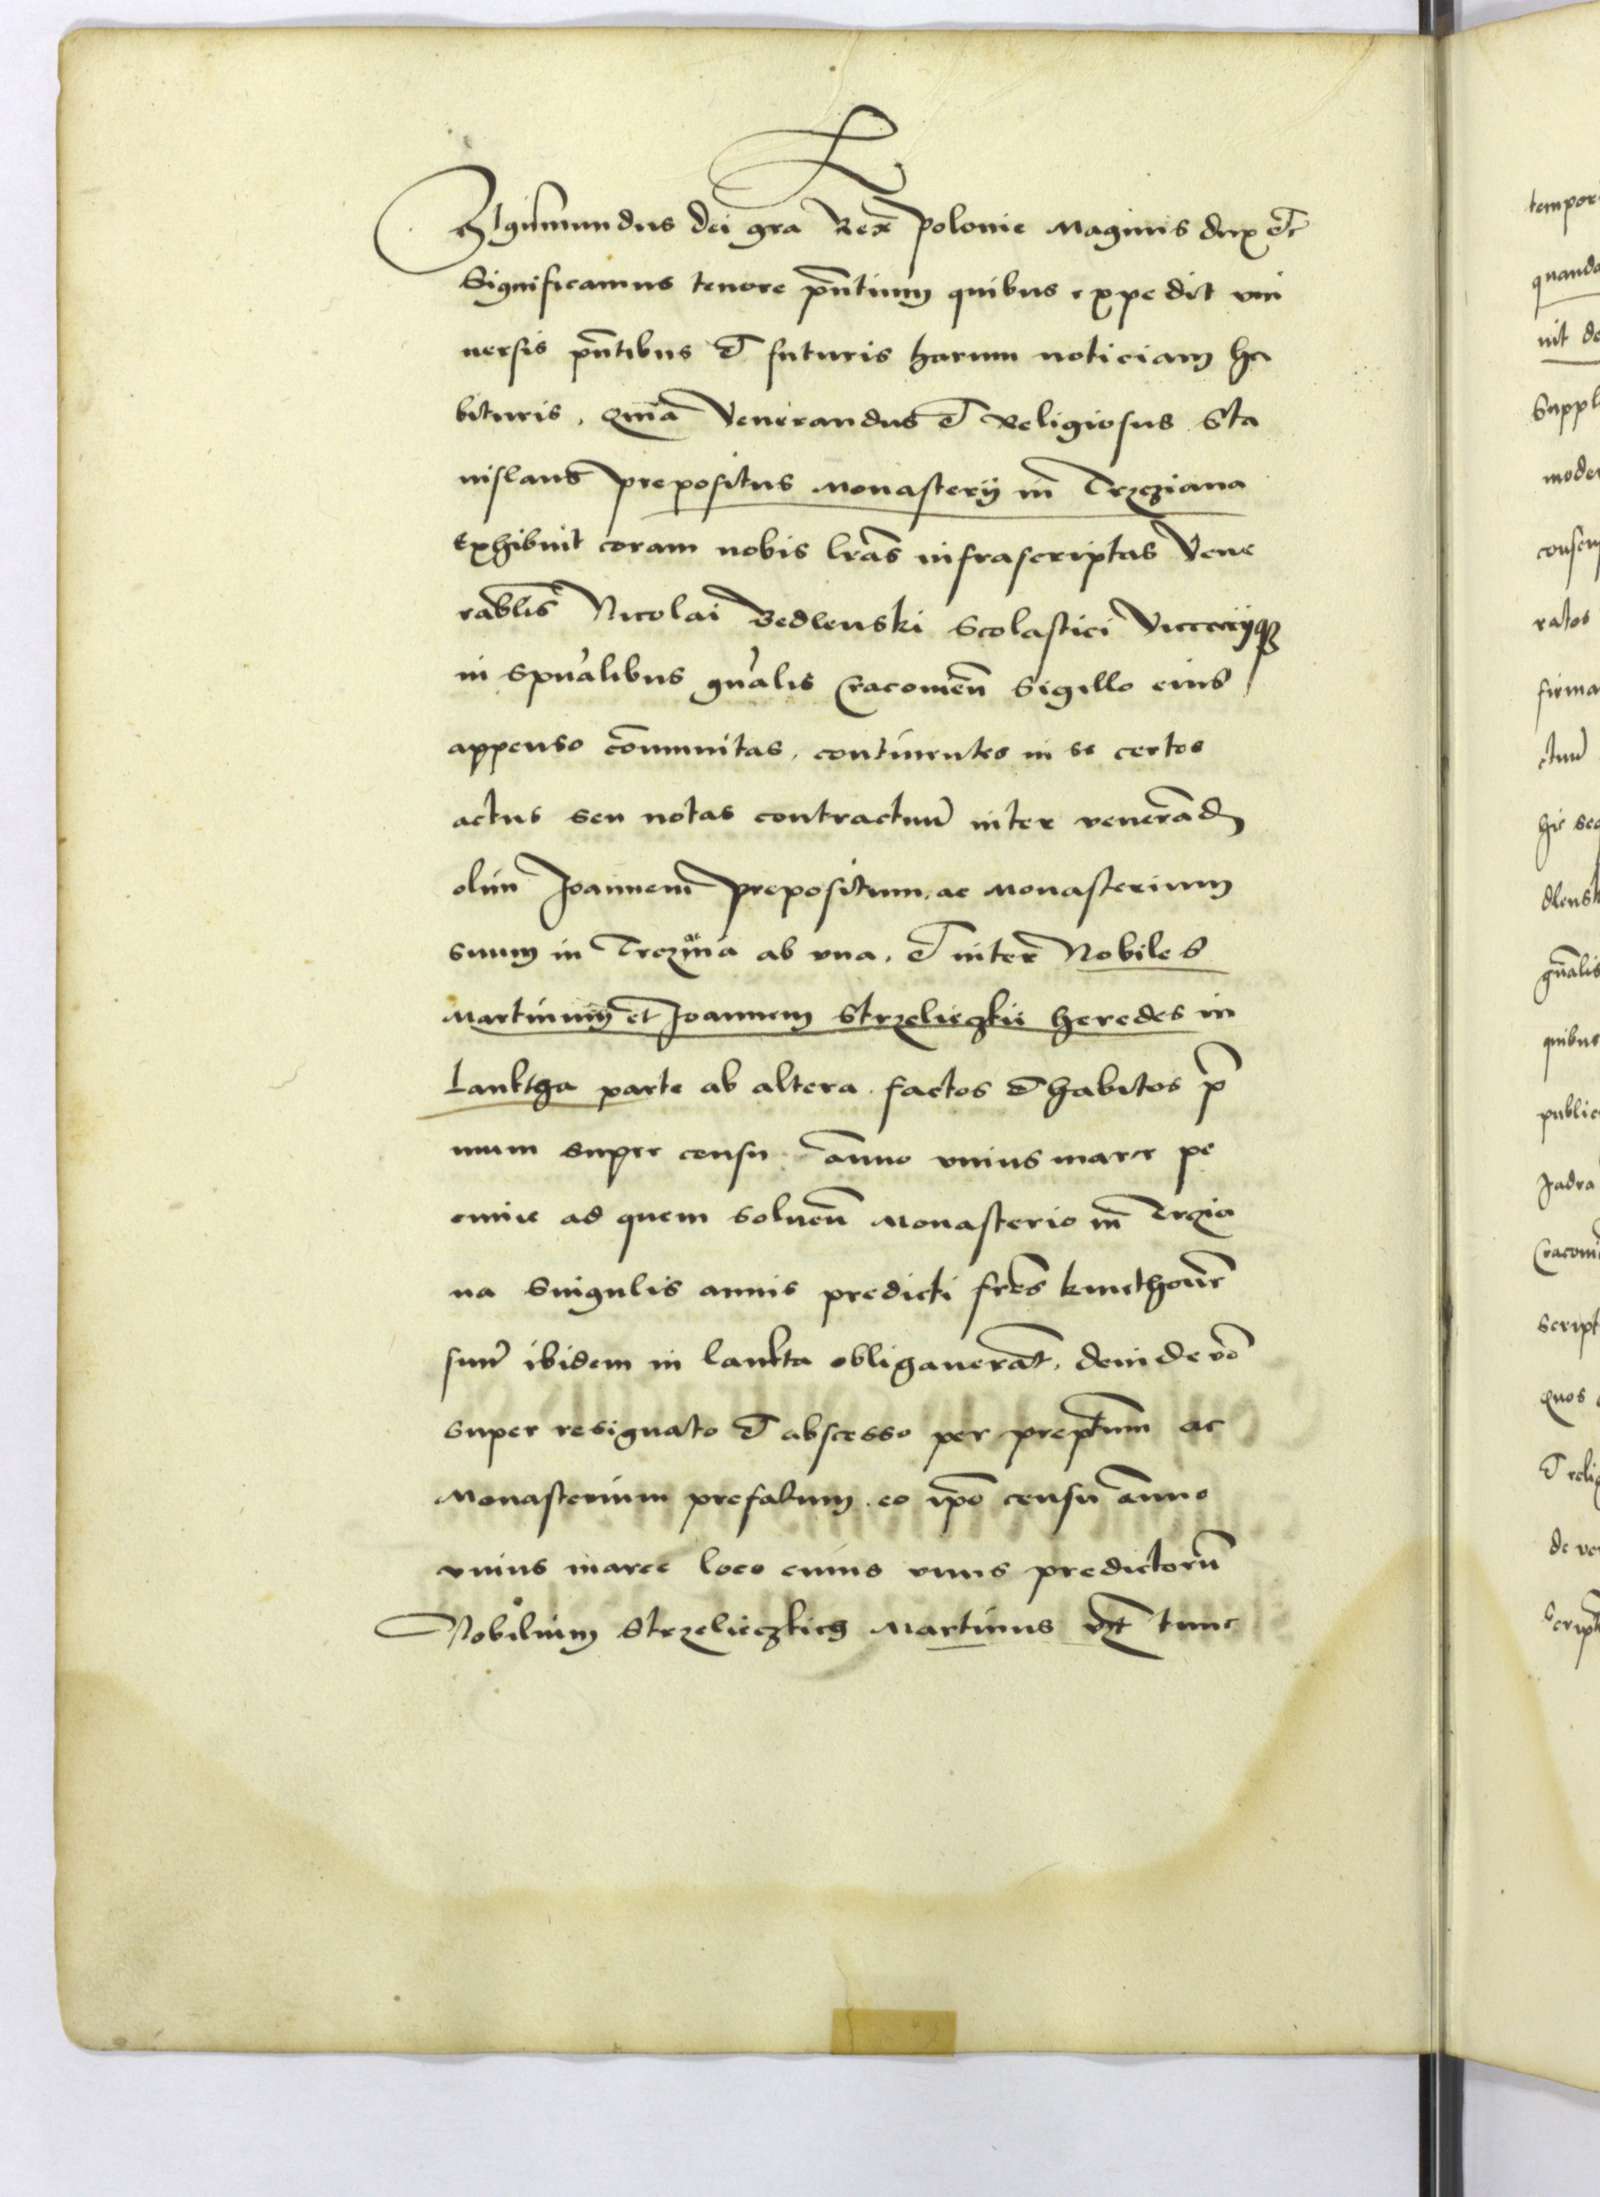 Sigismundus dei gra Rex Polonie Magnus dux etc
Significamus tenore pñtium quibus expedit vni
uersis pñtibus et futuris harum noticiam ha
bituris, Quia Venerandus et Religiosus Sta
nislaus prepositus Monasterij in Trzcziana
Exhibuit coram nobis lras infrascriptas Vene
rablis Nicolai Bedlenski Scolastici Vicarijq
in spualibus gnalis Cracouien Sigillo eius
appenso comunitas, continentes in se certos
actus seu notas contractuum inter venerand
olim Joannem prepositum, ac Monasterium
suum in Trczana ab vna, et inter Nobiles
Martinum et Joannem Strzeliczkii heredes in
Lanktha parte ab altera factos et habitos p
mum super censu anno vnius marce pe
cunie ad quem soluen Monasterio in Trzcia
na Singulis annis predicti fres kmethones
suum ibidem in lankta obligauerat, deinde vo
super resignato et abscesso per preptum ac
Monasterium prefatum eo ipo censu anno
vnius marce loco cuius vnus predictoru
Nobilium Strzelieczkich Martinus vt tunc
tempor
quanda
nit de
Suppl
moder
consen
ratos
firma
ctum
hic seq
dlensk
gnalis
quibus
public
Jadra
Cracoui
script
quos
et relig
de ve
script